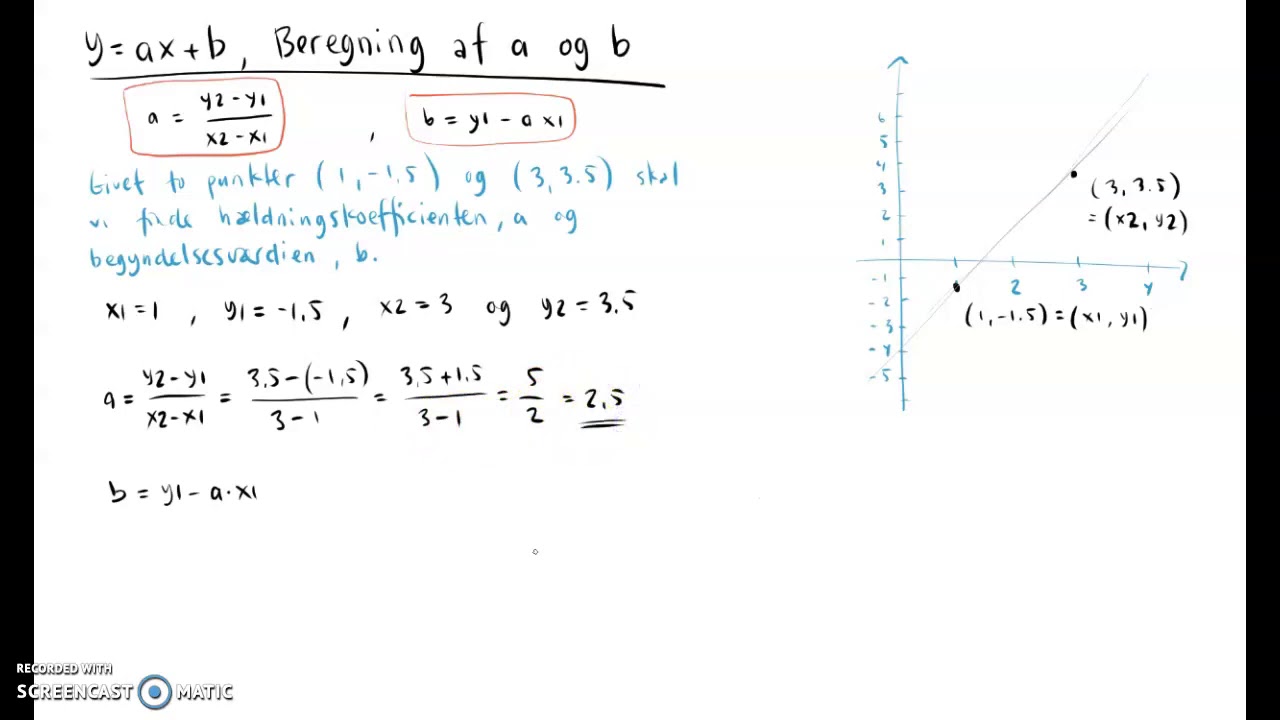 y = ax + b, Beregning af a og b
a = y2 - y1 / x2 - x1 , b = y1 - a x1
Givet to punkter (1, -1,5) og (3, 3.5) skal
vi finde hældningskoefficienten, a og
begyndelsesværdien, b.
x1 = 1 , y1 = -1,5 , x2 = 3 og y2 = 3.5
a = y2 - y1 / x2 - x1 = 3,5 - (-1,5) / 3 - 1 = 3,5 + 1,5 / 3 - 1 = 5 / 2 = 2,5
b = y1 - a · x1
6
5
4
3
2
1
-1
-2
-3
-4
-5
2 3 4
(3, 3.5)
= (x2, y2)
(1, -1.5) = (x1, y1)
RECORDED WITH
SCREENCAST MATIC